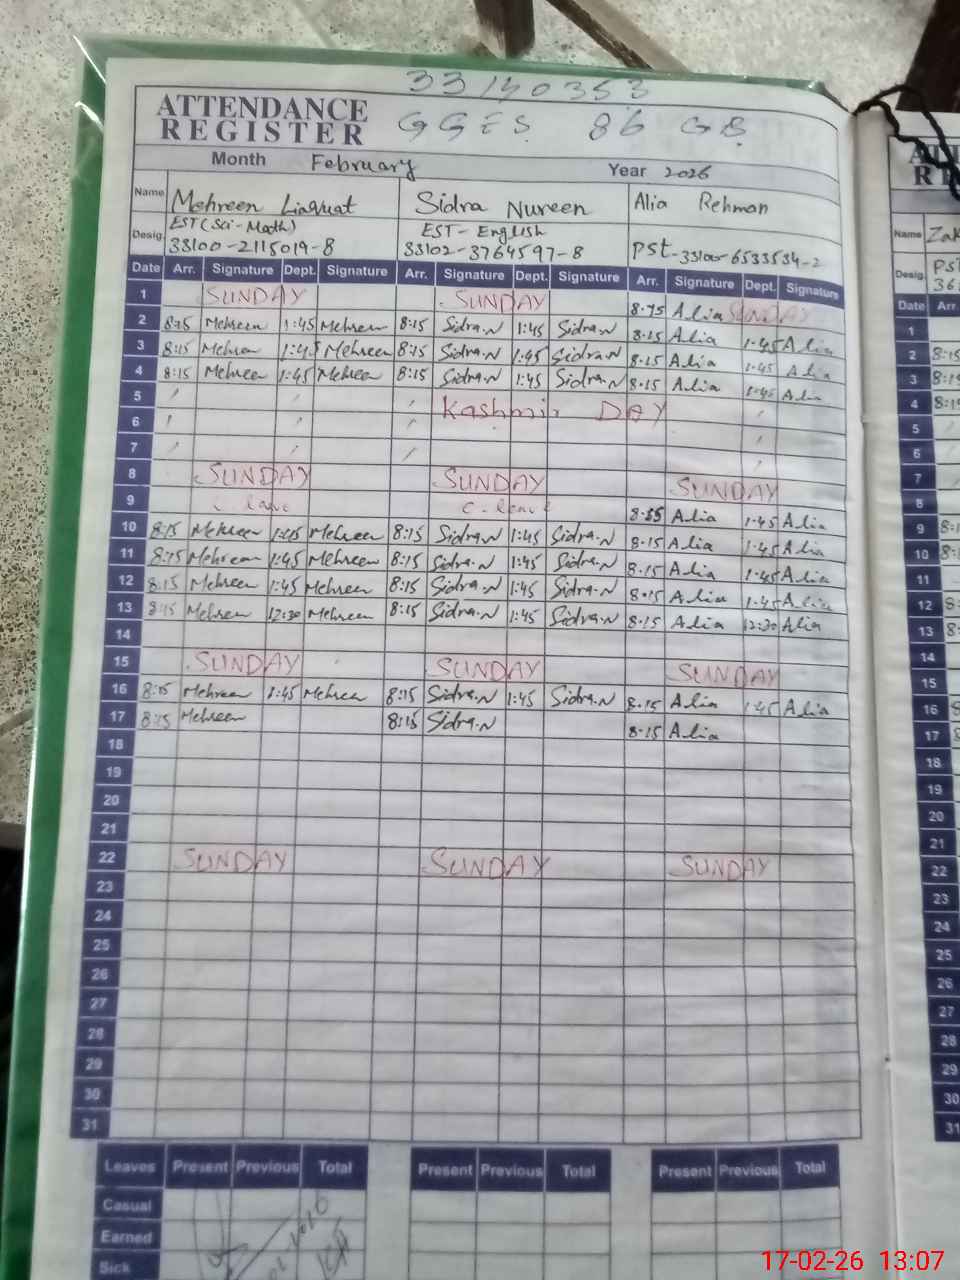 33140353
ATTENDANCE REGISTER
GGES 86 GB
Month February Year 2026
Name Mehreen Liaquat Sidra Nureen Alia Rehman
Desig. EST (Sci-Math) EST - English PST - 33100-6533534-2
33100-2115019-8 33102-3764597-8
Date Arr. Signature Dept. Signature Arr. Signature Dept. Signature Arr. Signature Dept. Signature
1 SUNDAY SUNDAY Alia SUNDAY
2 8:15 Mehreen 1:45 Mehreen 8:15 Sidra.N 1:45 Sidra.N 8:15 Alia 1:45 Alia
3 8:15 Mehreen 1:45 Mehreen 8:15 Sidra.N 1:45 Sidra.N 8:15 Alia 1:45 Alia
4 8:15 Mehreen 1:45 Mehreen 8:15 Sidra.N 1:45 Sidra.N 8:15 Alia 1:45 Alia
5 Kashmir DAY
6
7
8 SUNDAY SUNDAY SUNDAY
9 C. leave Alia 1:45 Alia
10 8:15 Mehreen 1:45 Mehreen 8:15 Sidra.N 1:45 Sidra.N 8:15 Alia 1:45 Alia
11 8:15 Mehreen 1:45 Mehreen 8:15 Sidra.N 1:45 Sidra.N 8:15 Alia 1:45 Alia
12 8:15 Mehreen 1:45 Mehreen 8:15 Sidra.N 1:45 Sidra.N 8:15 Alia 1:45 Alia
13 8:15 Mehreen 12:30 Mehreen 8:15 Sidra.N 1:45 Sidra.N 8:15 Alia 12:30 Alia
14
15 SUNDAY SUNDAY SUNDAY
16 8:15 Mehreen 1:45 Mehreen 8:15 Sidra.N 1:45 Sidra.N 8:15 Alia 1:45 Alia
17 8:15 Mehreen 8:15 Sidra.N 8:15 Alia
18
19
20
21
22 SUNDAY SUNDAY SUNDAY
23
24
25
26
27
28
29
30
31
Leaves Present Previous Total Present Previous Total Present Previous Total
Casual
Earned
Sick
Name
Desig. PST
Date Arr.
1
2 8:15
3
4
5
6
7
8
9
10
11
12
13
14
15
16
17
18
19
20
21
22
23
24
25
26
27
28
29
30
31
17-02-26 13:07